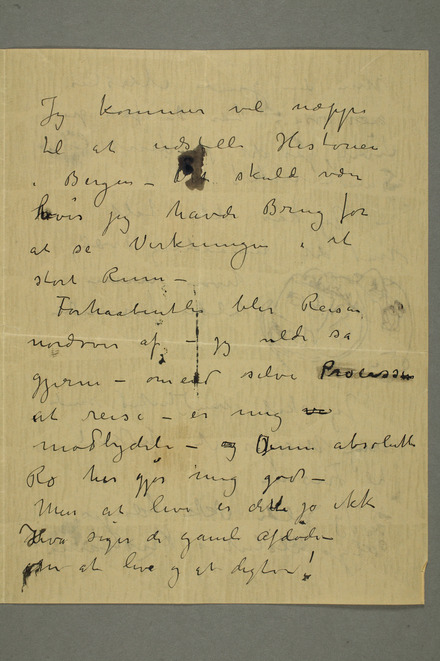 Jeg kommer vel neppe
til at udstille Historien
i Bergen – Det skuld være
hvis jeg havde Brug for
at se Virkningen i et
stort Rum –
Forhaabentlig blir Reisen
nordover af, – jeg vilde så
gjerne – omend selve Processen
at reise – er mig
modbydelig – og Denne absolutte
Ro her gjør mig godt –
Men at leve er dette jo ikke
Hva siger de gamle afdøde
om at leve og at digte!